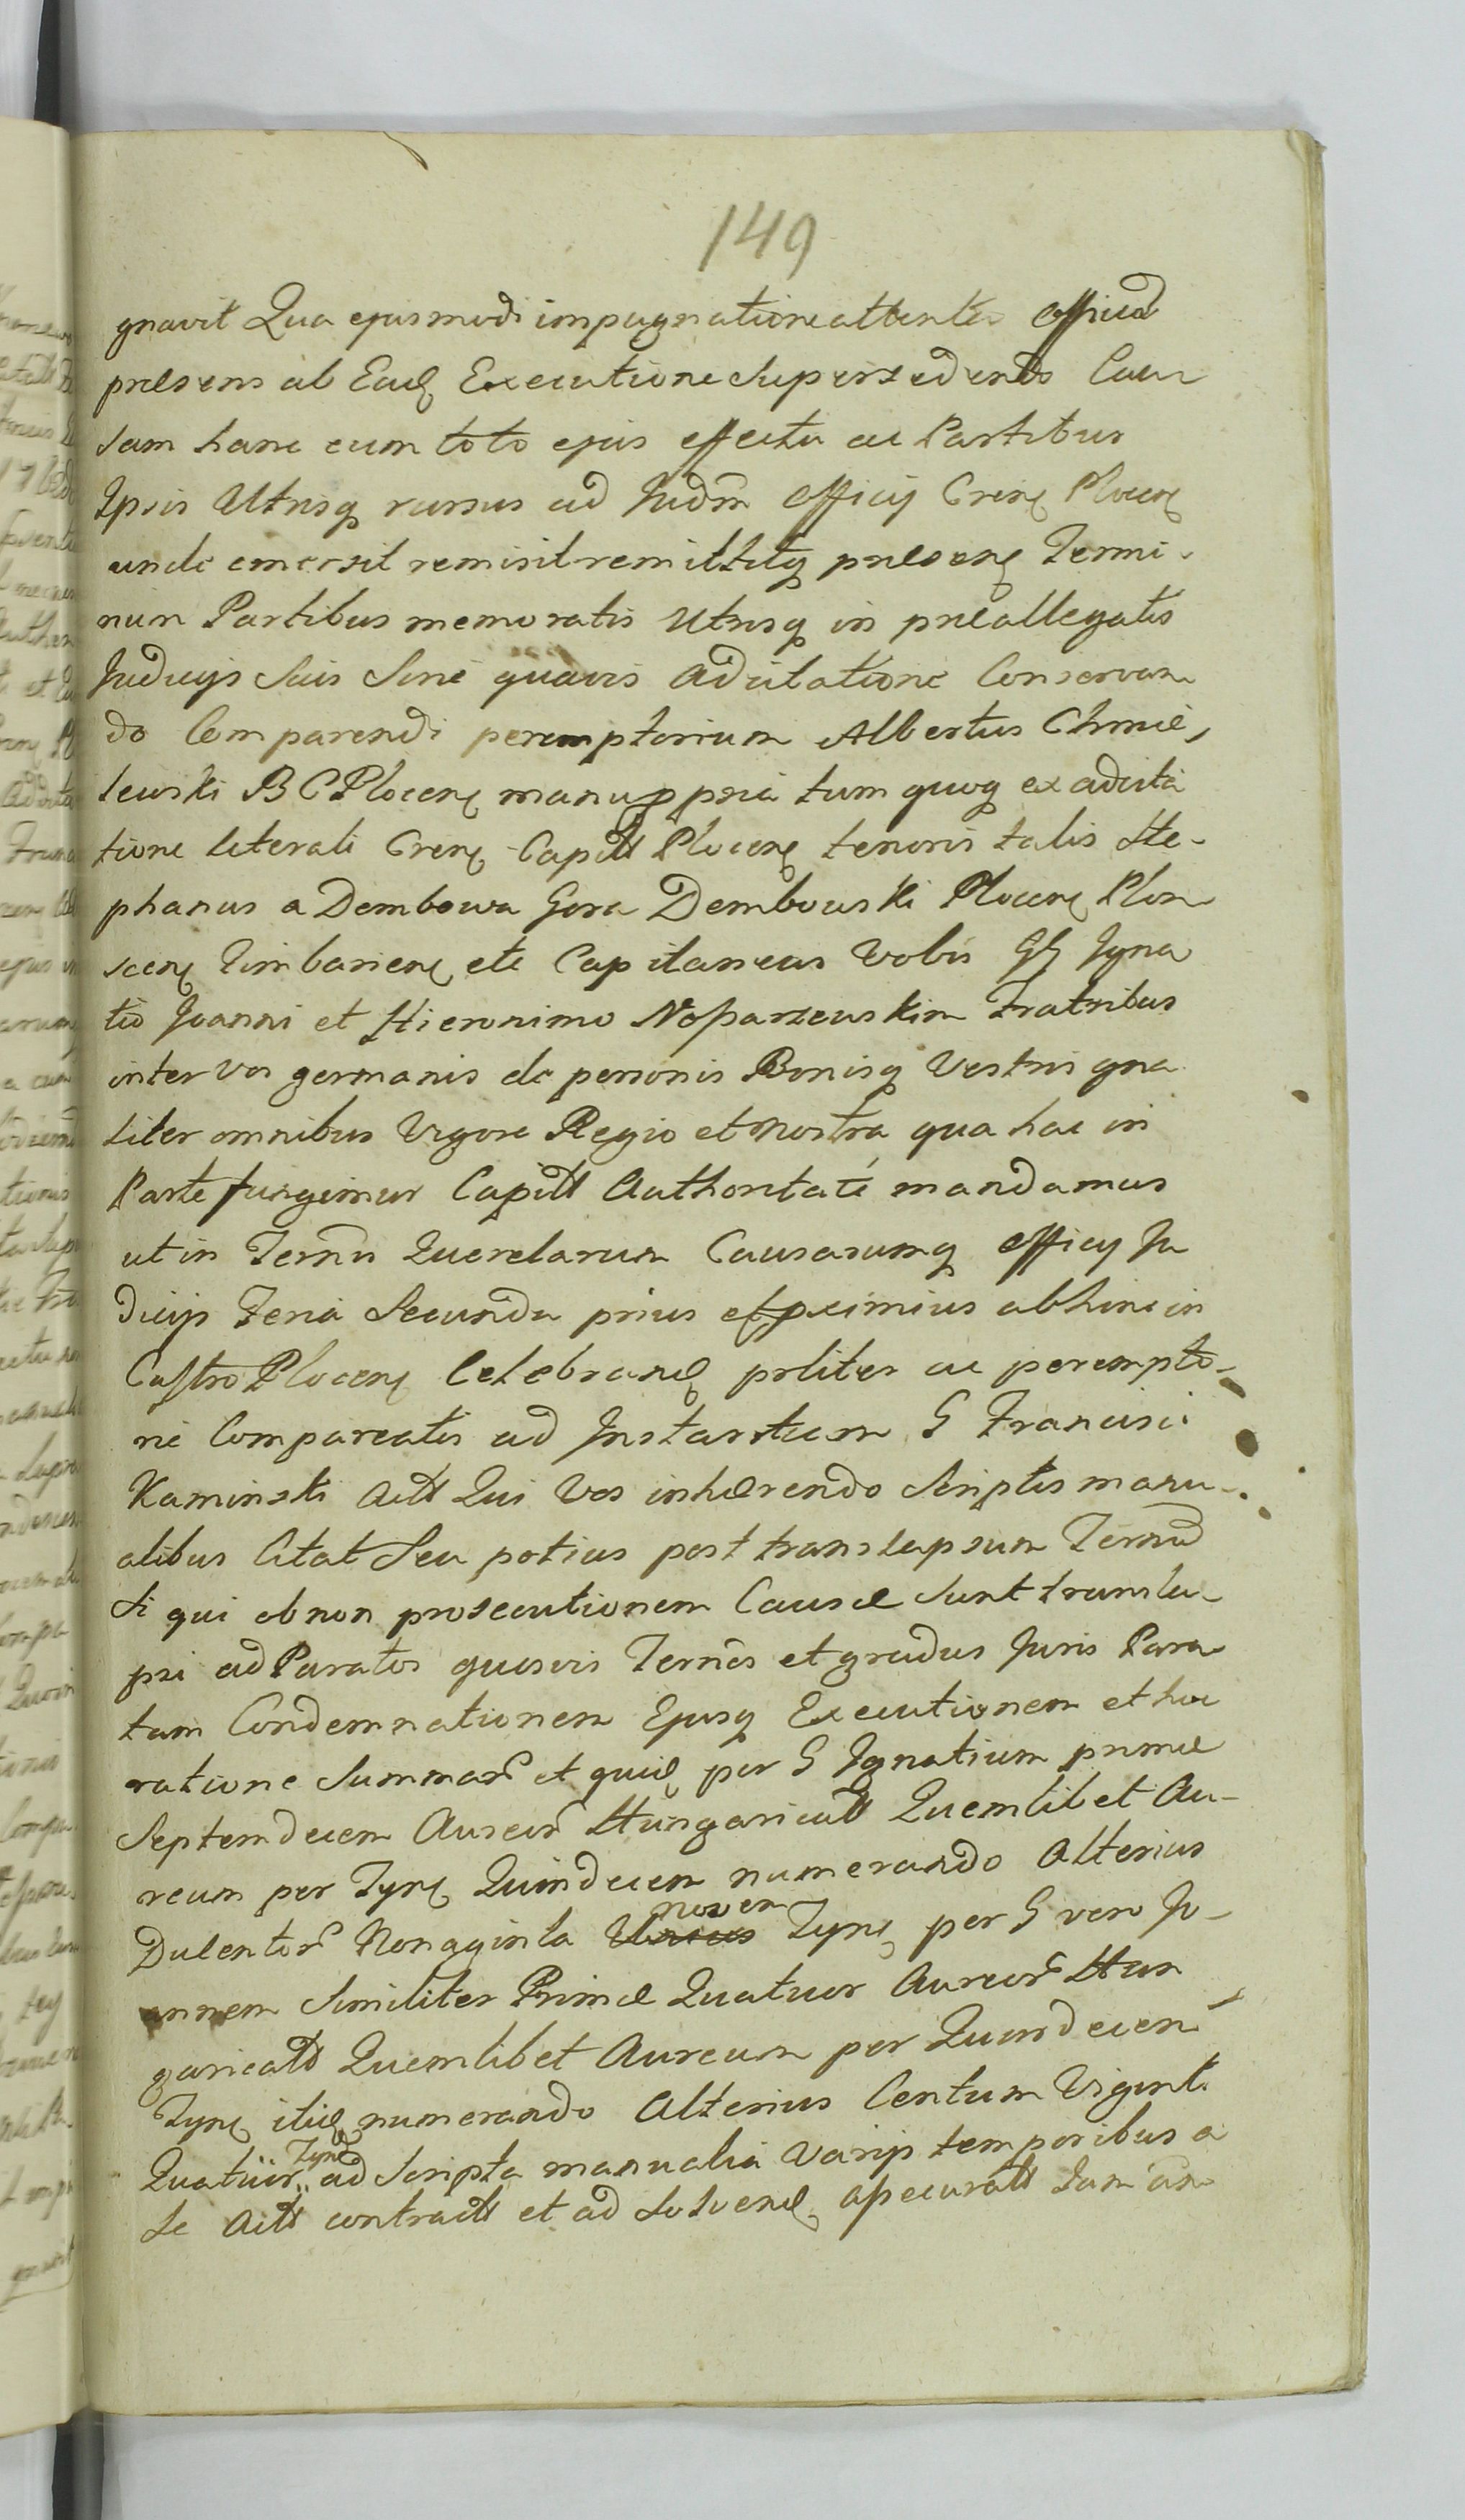 149
gnavit Qua ejusmodi impugnatione attenta Officiū
præsens ab Eadē Executione Supersedendo Cau
sam hanc cum toto ejus effectu ac Partibus
Ipsis Utrisq rursus ad Judm Officij Crensę Plocenę
unde emersit remisit remittitq præsenę Termi-
num Partibus memoratis Utrisq in præallegatis
Judicijs Suis Sine quavis Adcitatione Conservan
do Comparendi peremptorium Albertus Chmie,
lewski B C Plocenę manu ppria tum quoq ex adcita
tione literali Crenę Capitt Plocenę tenoris talis Ste-
phanus a Dembowa Gora Dembowski Plocenę Plon
scenę Zimbarienę etc Capitaneus Vobis GG Igna
tio Joanni et Hieronimo Noparzewskim Fratribus
inter Vos germanis de personis Bonisq Vestris gna
liter omnibus Vigore Regio et nostra qua hac in
Parte fungimur Capitt Authoritate mandamus
ut in Termis Querelarum Causarumq Officij Ju
dicijs Feria Secunda prius et proximius abhinc in
Castro Plocenę Celebranđ prliter ac perempto-
rie Compareatis ad Instantiam G Francisci
Kaminski Actt Qui Vos inhærendo Scriptis manu-
alibus Citat Seu potius post translapsum Termū
Si qui ob non prosecutionem Causæ Sunt transla
psi ad Paratos quosvis Termos et gradus Juris Para
tam Condemnationem Ejusq Executionem et hoc
ratione Summar et quidē per G Ignatium primæ
Septemdecem Aureor Hungaricatt Quemlibet Au-
reum per Tynę Quindecem numerando Alterius
Dulentor Nonaginta novem Tynę per G vero Jo-
annem Similiter Primæ Quatuor Aureor Hun
garicatt Quemlibet Aureum per Quindecem
Tynę itidē numerando Alterius Centum Viginti
Quatuor Tynę ad Scripta manualia Varijs temporibus a
Se Actt contractt et ad Solvenđ apecuratt Jam an